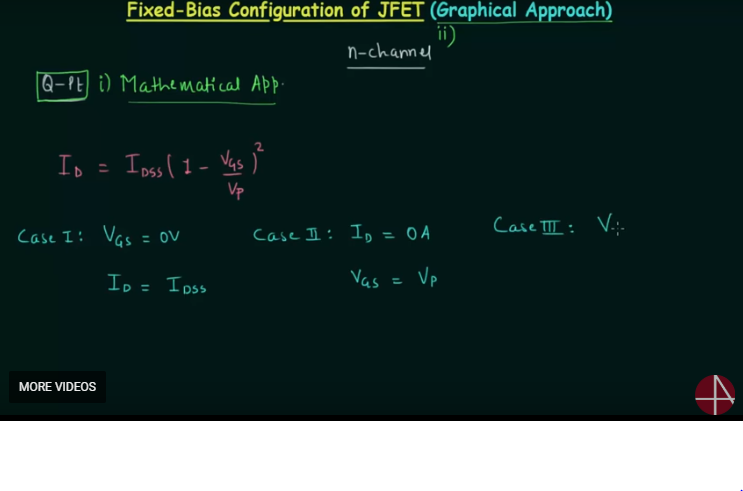 Fixed-Bias Configuration of JFET (Graphical Approach)
ii)
n-channel
Q-Pt i) Mathematical App.
I_D = I_DSS (1 - V_GS/V_P)^2
Case I: V_GS = 0V
I_D = I_DSS
Case II: I_D = 0A
V_GS = V_P
Case III: V
MORE VIDEOS